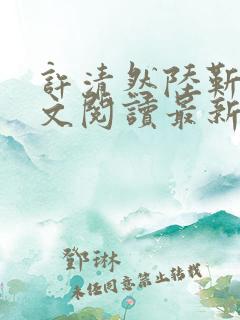 許清然陸靳
文閱讀最新
鄧琳
未经同意禁止转载